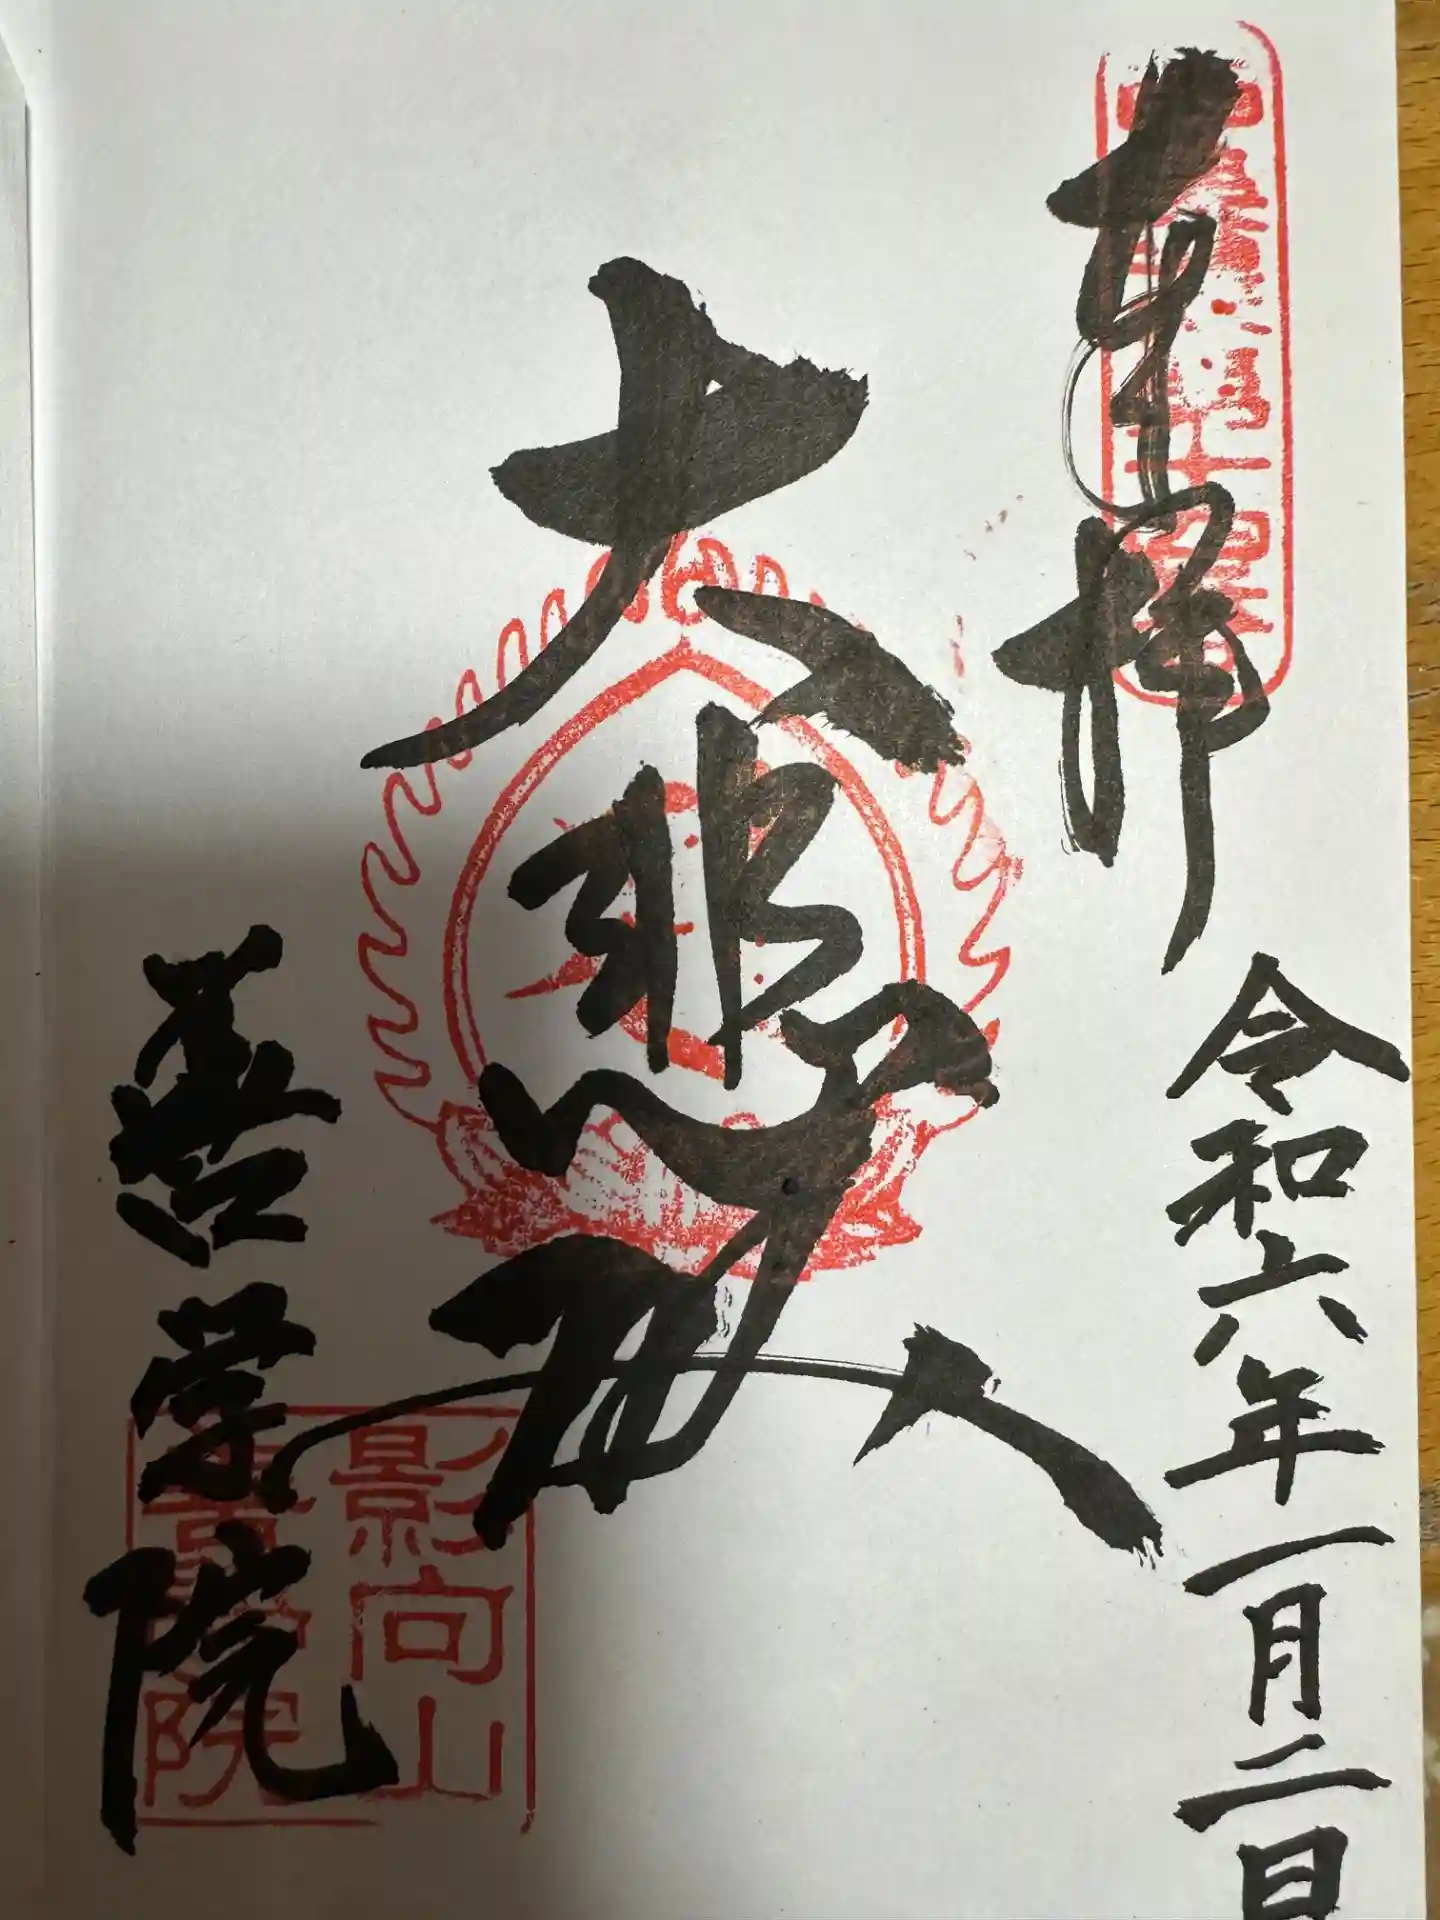 奉拝
令和六年一月二日
大悲殿
善学院
影向山
善学院